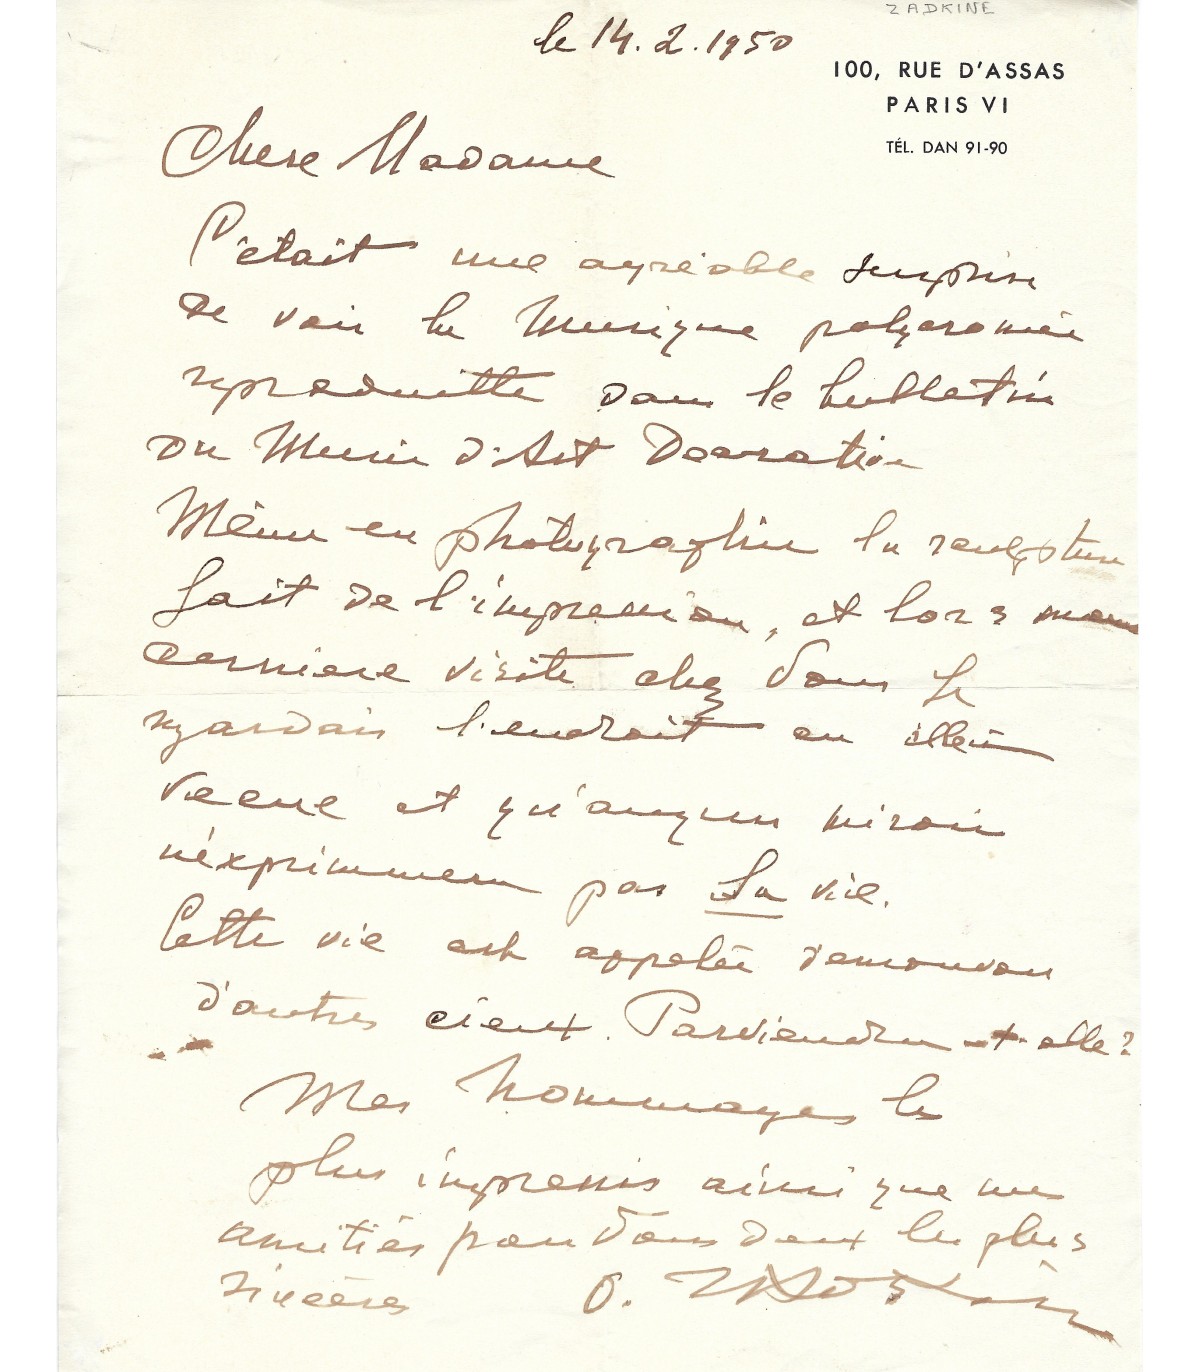 ZADKINE
le 14.2.1950
100, RUE D'ASSAS
PARIS VI
TÉL. DAN 91-90
Chere Madame
C'était une agréable surprise
de voir la Musique polycromée
reproduitte dans le bulletin
du Musée d'Art Decoration
Même en photographie la sculpture
fait de l'impression, et lors
derniere visite chez Vous je
regardais l'endroit ou elle
et qu'auqun miroir
n'exprimmera pas La vie.
Cette vie est appelée
d'autres cieux. Parviendra-t-elle?
Mes hommages les
plus impressis ainsi que mes
amitiés pour Vous deux les plus
sincères O. Zadkine